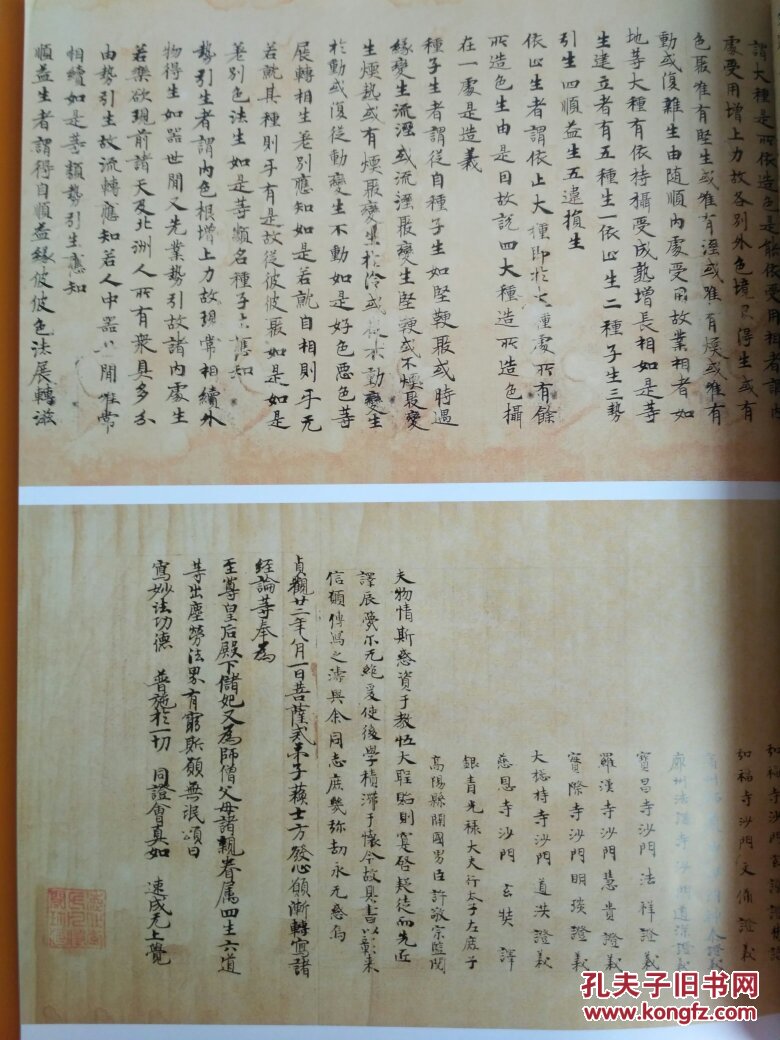 謂大種是所依造色是能依受用相者謂內
處受用增上力故各別外色境界得生或有
色聚唯有堅生或唯有溼或唯有煖或唯有
動或復雜生由隨順內處受用故業相者如
地等大種有依持攝受成熟增長相如是等
生建立者有五種生一依止生二種子生三勢
引生四順益生五違損生
依止生者謂依止大種即於大種處所有餘
所造色生由是因故說四大種造所造色攝
在一處是造義
種子生者謂從自種子生如堅鞕聚或時遇
緣變生流溼或流溼聚變生堅鞕或不煖聚變
生煖熱或有煖聚變生於冷或於不動變生
於動或復從動變生不動如是好色惡色等
展轉相生差別應知如是若就自相則乎无
若就其種則乎有是故從彼彼聚如是如是
差別色法生如是等類名種子生應知
勢引生者謂內色根增上力故現常相續外
物得生如器世間又先業勢引故諸內處生
若樂欲現前諸天及北洲人所有眾具多分
由勢引生故流轉應知若人中器世間唯常
相續如是等類勢引生應知
順益生者謂得自順益緣彼彼色法展轉滋
如福寺沙門文備證義
廓州法講寺沙門道深證義
寶昌寺沙門法祥證義
羅漢寺沙門慧貴證義
實際寺沙門明琰證義
大摠持寺沙門道洪證義
慈恩寺沙門玄奘譯
銀青光祿大夫行太子左庶子
高陽縣開國男臣許敬宗監閱
夫物情斯惑資于教
大聖貽則寔啓疑徒而先匠
譯辰夐尓无絕爰使後學積滯于懷今故具書以彰來
信願傳寫之儔與余同志庶幾弥劫永无惑焉
貞觀廿二年八月一日菩薩戒弟子蘇士方發心願漸轉寫諸
經論等奉為
至尊皇后殿下儲妃又為師僧父母諸親眷屬四生六道
等出塵勞法界有窮斯願無泯頌曰
寫妙法功德 普施於一切 同證會真如 速成无上覺
孔夫子旧书网
www.kongfz.com